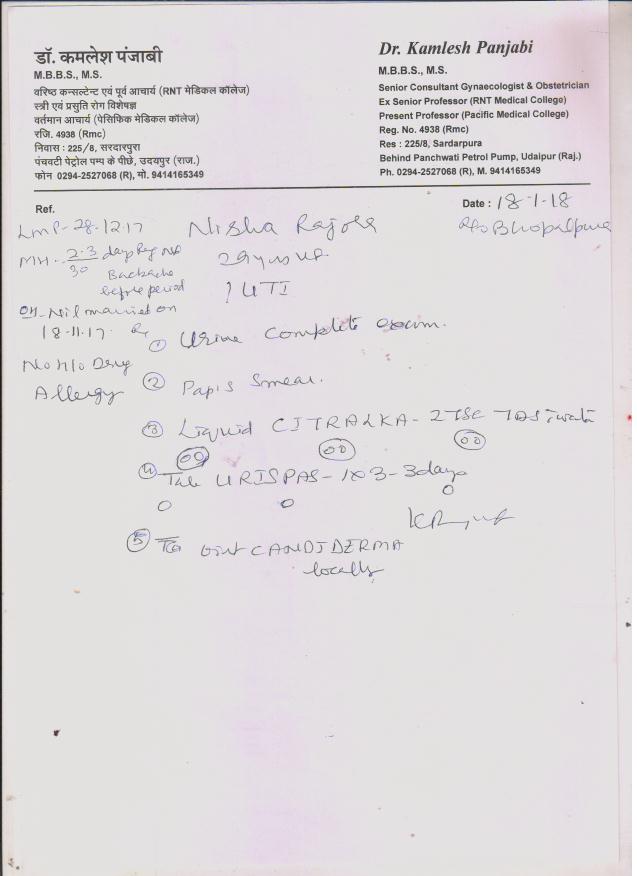 डॉ. कमलेश पंजाबी
M.B.B.S., M.S.
वरिष्ठ कन्सल्टेन्ट एवं पूर्व आचार्य (RNT मेडिकल कॉलेज)
स्त्री एवं प्रसुति रोग विशेषज्ञ
वर्तमान आचार्य (पेसिफिक मेडिकल कॉलेज)
रजि. 4938 (Rmc)
निवास : 225/8, सरदारपुरा
पंचवटी पेट्रोल पम्प के पीछे, उदयपुर (राज.)
फोन 0294-2527068 (R), मो. 9414165349
Dr. Kamlesh Panjabi
M.B.B.S., M.S.
Senior Consultant Gynaecologist & Obstetrician
Ex Senior Professor (RNT Medical College)
Present Professor (Pacific Medical College)
Reg. No. 4938 (Rmc)
Res : 225/8, Sardarpura
Behind Panchwati Petrol Pump, Udaipur (Raj.)
Ph. 0294-2527068 (R), M. 9414165349
Ref.
Date : 18-1-18
LMP-28-12.17
Nisha Rajora
R/o Bhopalpura
MH- 2-3/30 days Reg
Backache
before period
29 yrs
? UTI
OH-Nil married on
18-11-17
No H/o Drug
Allergy
① Urine Complete exam.
② Pap's Smear.
③ Liquid CITRALKA- 2TSF TDS
④ Tab URISPAS-1x3-3days
⑤ Oint CANDIDERMA
locally